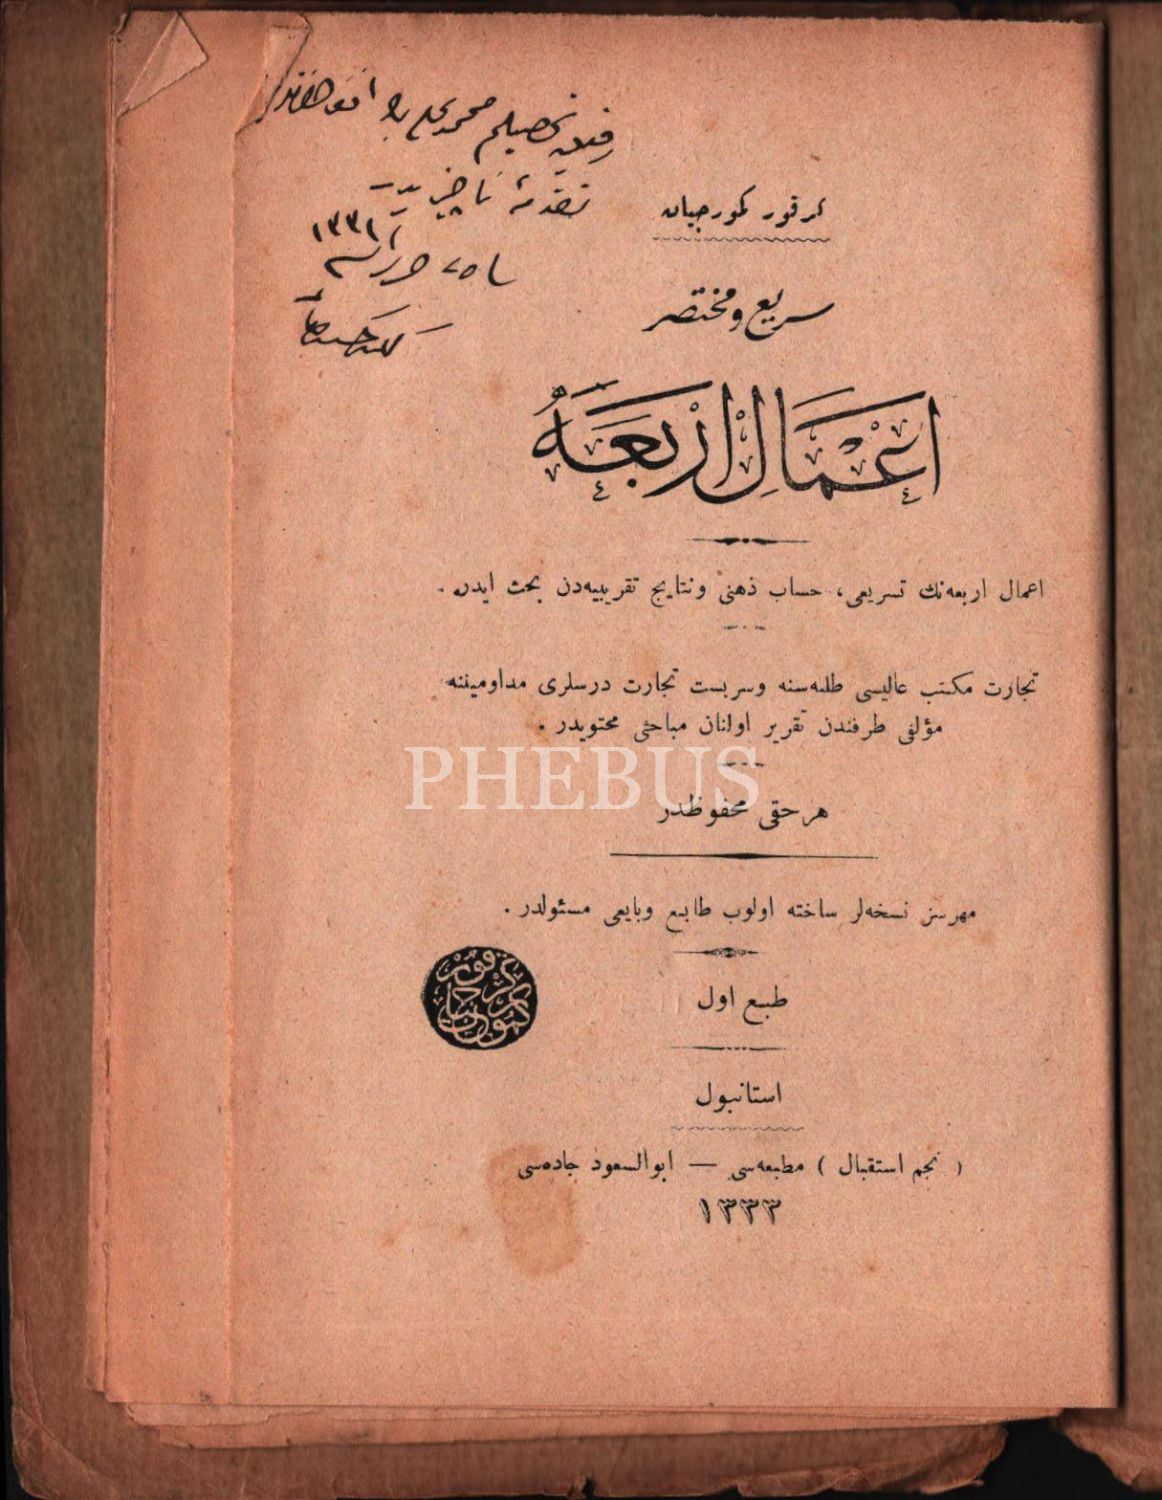 رفيق تحصيلم محمد
تقدمهٔ ناچيز
كرقور كمورجيان
سريع و مختصر
اعمال اربعه
اعمال اربعه‌نك تسريعی، حساب ذهنی ونتايج تقريبيه‌دن بحث ايدر.
تجارت مكتب عاليسی طلبه‌سنه وسربست تجارت درسلری مداوميننه
مؤلفی طرفندن تقرير اولنان مباحثی محتويدر.
PHEBUS
هر حقی محفوظدر
مهرسز نسخه‌لر ساخته اولوب طابع وبايعی مسئولدر.
طبع اول
استانبول
( نجم استقبال ) مطبعه‌سی — ابوالسعود جاده‌سی
١٣٣٣